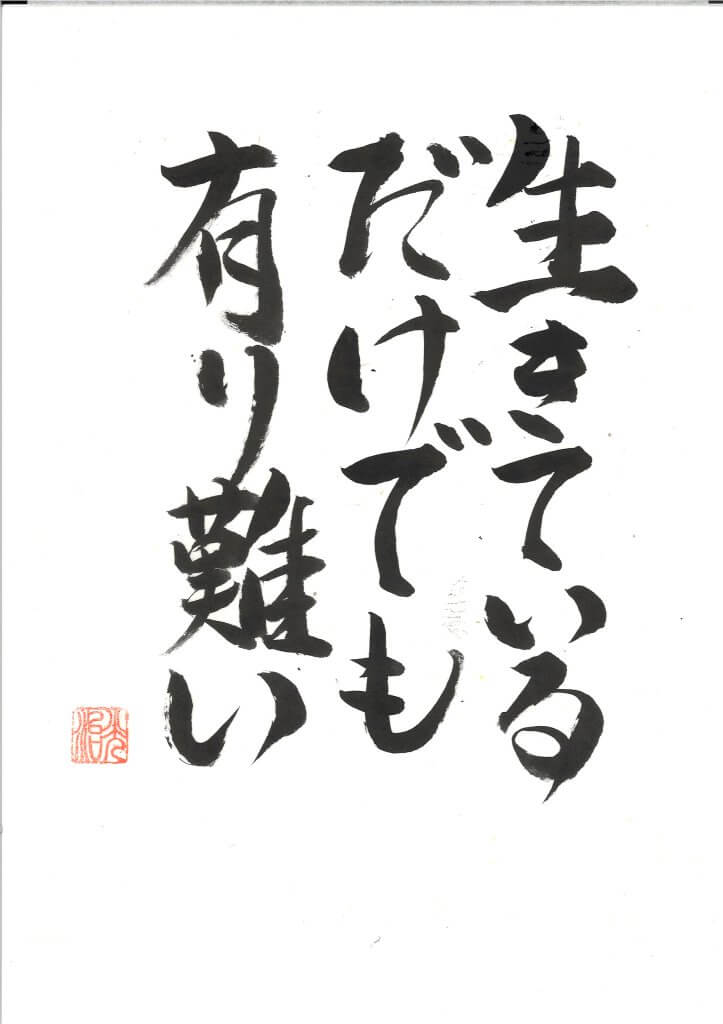 生きている
だけでも
有り難い